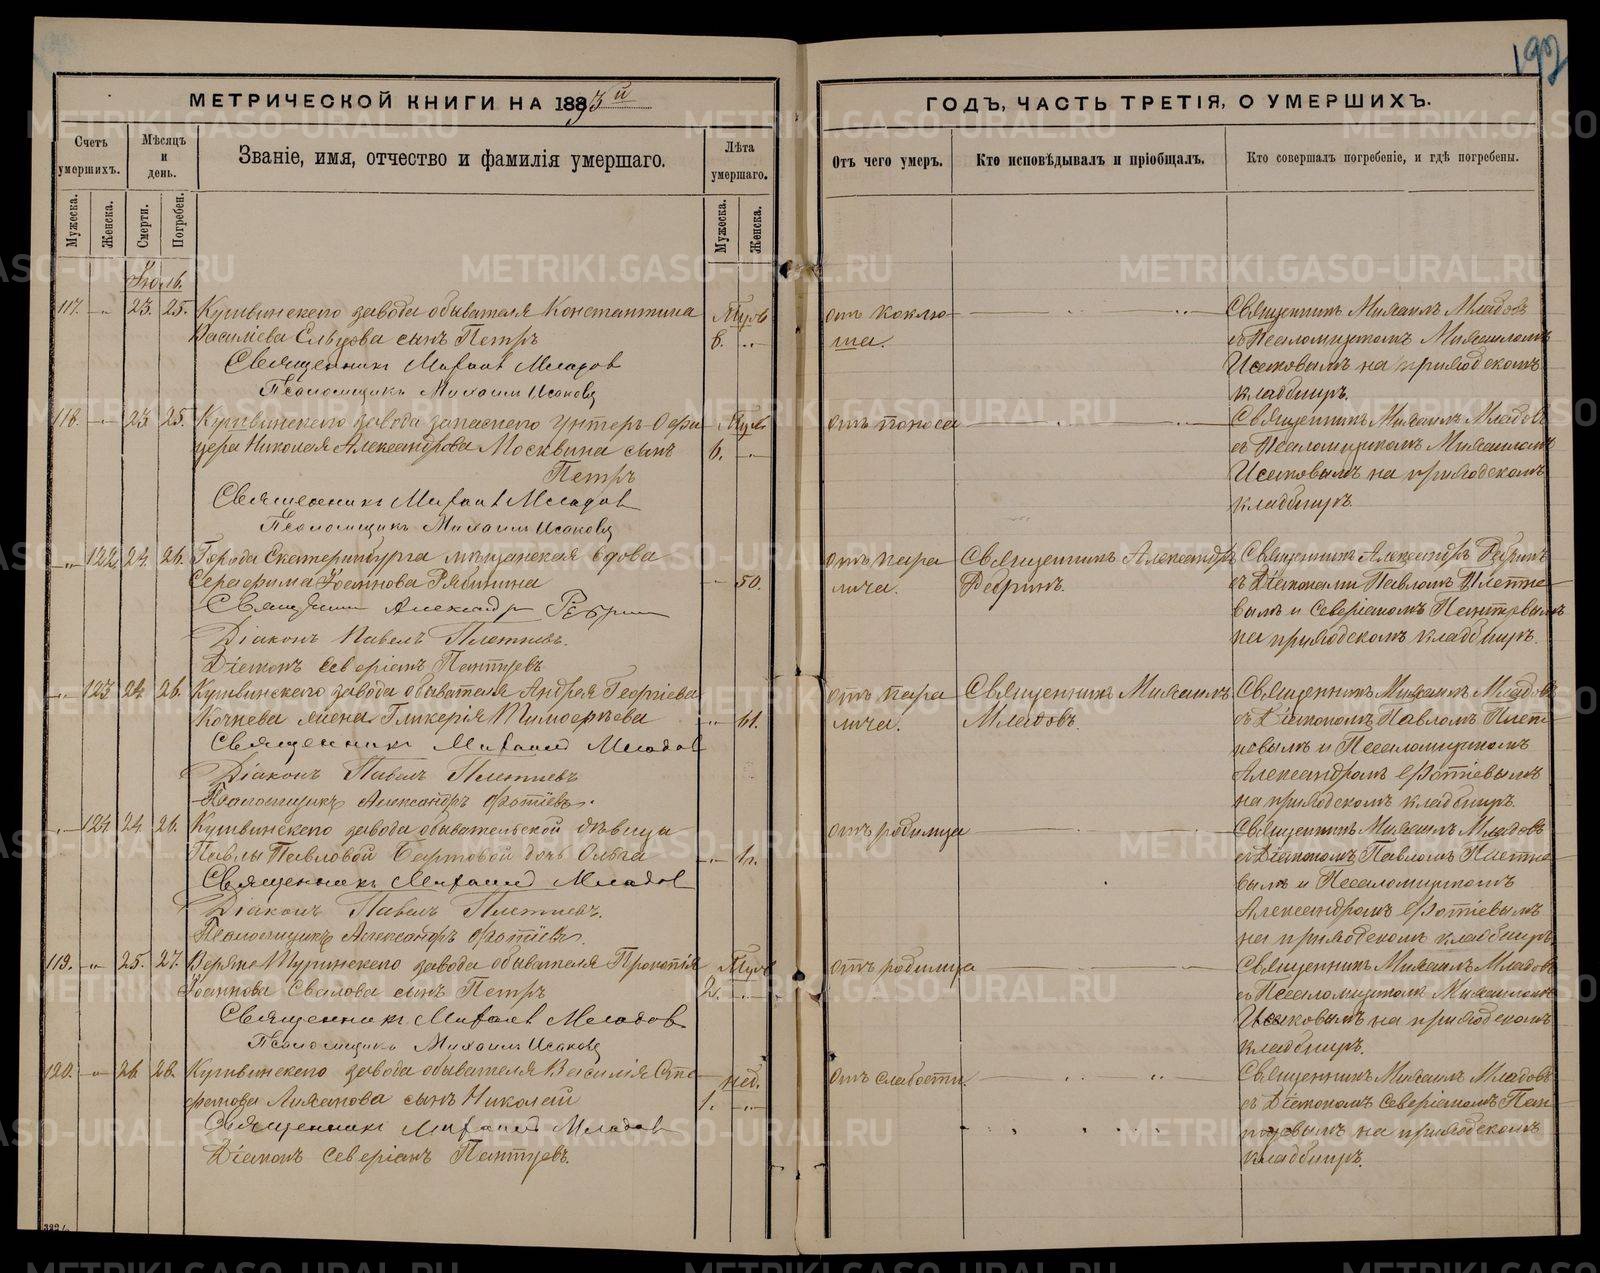 192
МЕТРИЧЕСКОЙ КНИГИ НА 1883й
ГОДЪ, ЧАСТЬ ТРЕТІЯ, О УМЕРШИХЪ.
Счетъ умершихъ.
Мѣсяцъ и день.
Званіе, имя, отчество и фамилія умершаго.
Лѣта умершаго.
Отъ чего умеръ.
Кто исповѣдывалъ и пріобщалъ.
Кто совершалъ погребеніе, и гдѣ погребены.
Мужеска.
Женска.
Смерти.
Погребен.
Мужеска.
Женска.
Іюль.
117. 23. 25. Кушвинскаго завода обывателя Константина
Василіева сынъ Петръ
6.
Священникъ Михаилъ Младов
Псаломщикъ Михаилъ Исаковъ
отъ коклю
ша.
Священникъ Михаилъ Младовъ
съ Псаломщикомъ Михаиломъ
Исаковымъ на приходскомъ
кладбищѣ.
118. 23. 25. Кушвинскаго завода запаснаго унтеръ-офи
цера Николая Александрова Москвина сынъ
6.
Петръ
Священникъ Михаил Младов
Псаломщикъ Михаилъ Исаковъ
отъ поноса
Священникъ Михаилъ Младовъ
съ Псаломщикомъ Михаиломъ
Исаковымъ на приходскомъ
кладбищѣ.
122. 24. 26. Города Екатеринбурга мѣщанская вдова
Серафима Іоаннова Рябинина
50.
Священникъ Александръ
Діаконъ Павелъ Плотниевъ.
Діаконъ Северіанъ
отъ пара
лича.
Священникъ Александръ
Священникъ Александръ
съ Діаконами Павломъ
вымъ и Северіаномъ
на приходскомъ кладбищѣ.
123. 24. 26. Кушвинскаго завода обывателя Андрея Георгіева
Кочнева жена Гликерія Тимоѳеева
61.
Священникъ Михаилъ Младов
Діаконъ Павелъ
Псаломщикъ Александръ Фотіевъ.
отъ пара
лича.
Священникъ Михаилъ
Младовъ.
Священникъ Михаилъ Младовъ
съ Діакономъ Павломъ
невымъ и Псаломщикомъ
Александромъ Фотіевымъ
на приходскомъ кладбищѣ.
124. 24. 26. Кушвинскаго завода обывательской дѣвицы
Павлы Павловой дочь Ольга
1г.
Священникъ Михаилъ Младов
Діаконъ Павелъ
Псаломщикъ Александръ Фотіевъ.
отъ родимца
Священникъ Михаилъ Младовъ
съ Діакономъ Павломъ
вымъ и Псаломщикомъ
Александромъ Фотіевымъ
на приходскомъ кладбищѣ.
119. 25. 27. Верхне Туринскаго завода обывателя Прокопія
Іоаннова сынъ Петръ
2.
Священникъ Михаил Младов
Псаломщикъ Михаилъ Исаковъ
отъ родимца
Священникъ Михаилъ Младовъ
съ Псаломщикомъ Михаиломъ
Исаковымъ на приходскомъ
кладбищѣ.
120. 26. 28. Кушвинскаго завода обывателя Василія Сте
фанова сынъ Николай
нед.
1.
Священникъ Михаилъ Младов
Діаконъ Северіанъ
отъ слабости.
Священникъ Михаилъ Младовъ
съ Діакономъ Северіаномъ
на приходскомъ
кладбищѣ.
METRIKI.GASO-URAL.RU